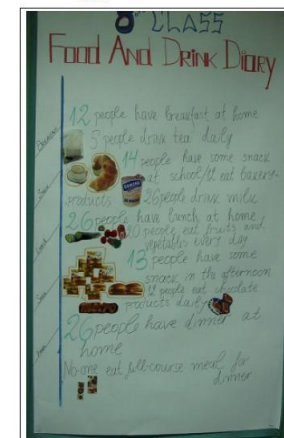 8th CLASS
Food And Drink Diary
12 people have breakfast at home
5 people drink tea daily
14 people have some snack
at school/11 eat bakery
products 26 people drink milk
26 people have lunch at home
20 people eat fruits and
vegetables every day
13 people have some
snack in the afternoon
12 people eat chocolate
products daily
26 people have dinner at
home
No one eat full-course meal for
dinner